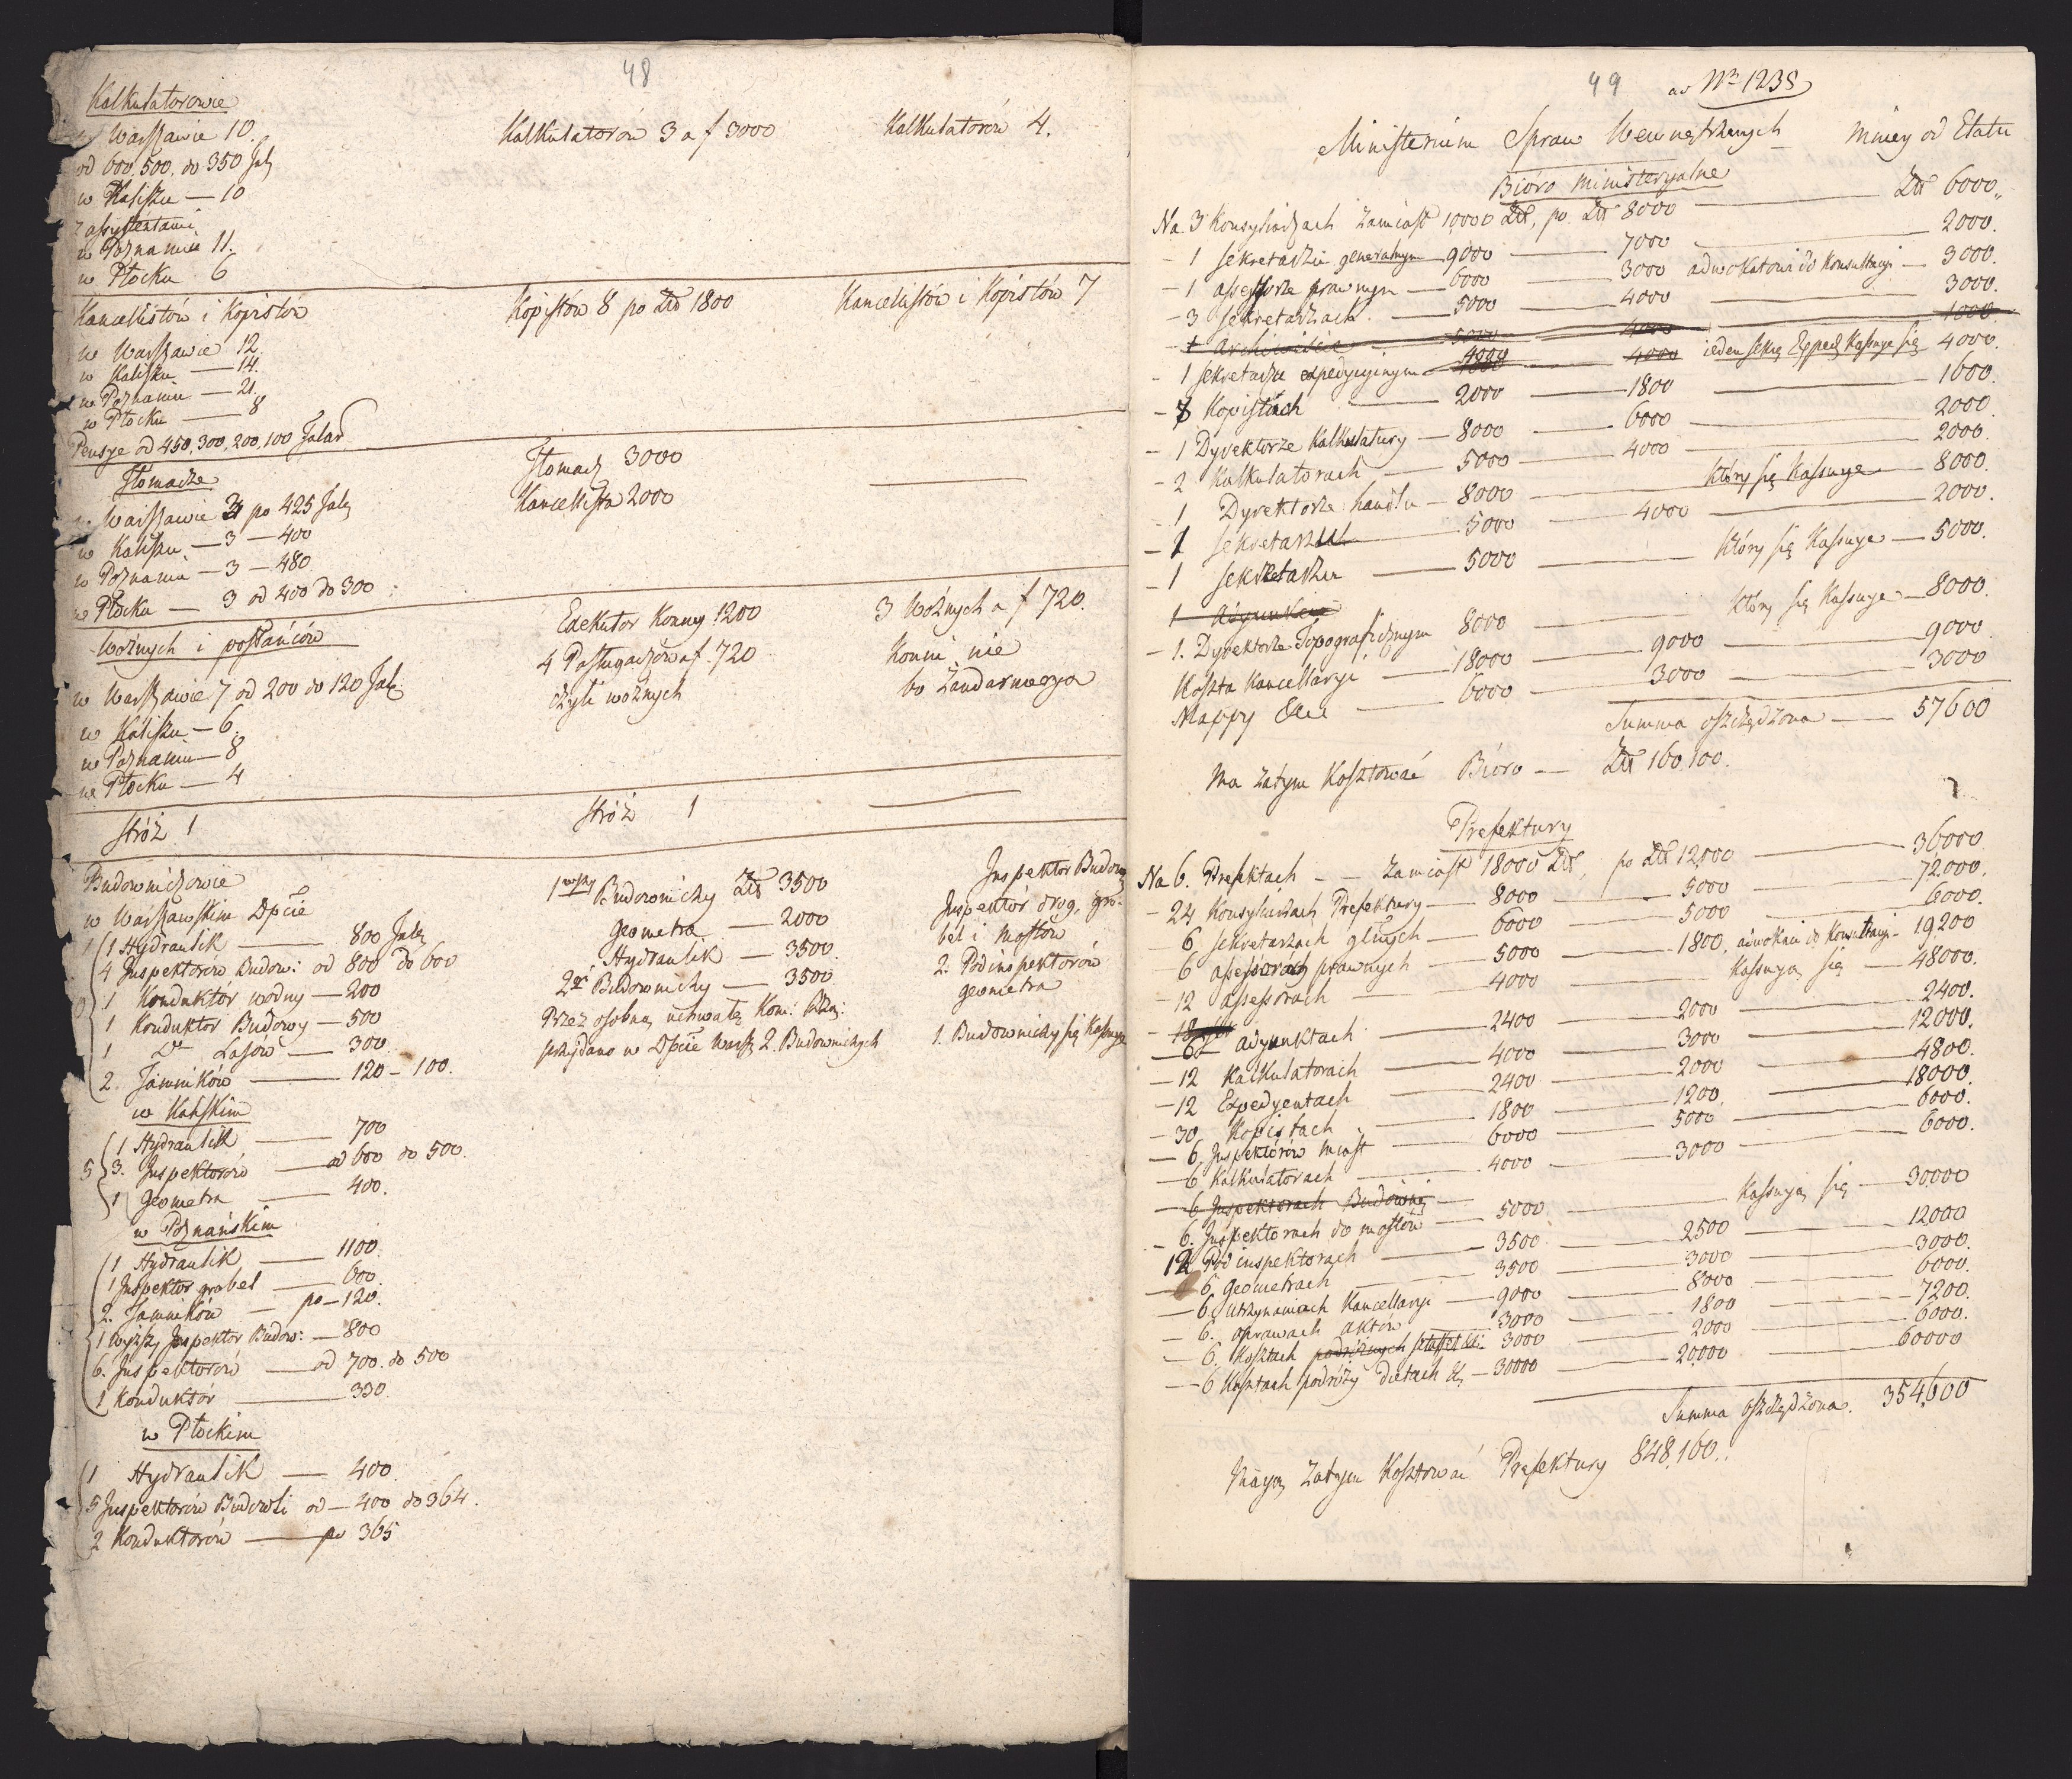 48
Kalkulatorowie
w Warszawie 10.
od 600, 500, do 350 Tal
w Kaliszu — 10
z assystentami
w Poznaniu 11.
w Płocku 6
Kalkulatorów 3 a f 3000
Kalkulatorów 4.
Kancellistów i Kopistów
w Warszawie 12.
w Kaliszu — 14.
w Poznaniu — 21.
w Płocku — 8
Pensye od 450, 300, 200, 100 Talar
Kopistów 8 po Złł 1800
Kancellistów i Kopistów 7
Tłomacze
w Warszawie 4 po 425 Tal
w Kaliszu — 3 — 400
w Poznaniu — 3 — 480
w Płocku — 3 od 400 do 300
Tłomacz 3000
Kancellista 2000
Woźnych i posłańców
w Warszawie 7 od 200 do 120 Tal:
w Kaliszu — 6.
w Poznaniu — 8
w Płocku — 4
Exekutor Konny 1200
4 Posługaczów a f. 720
czyli woźnych
3 Woźnych a f 720.
Konni nie
bo Żandarmerya
Stróż 1
Stróż 1
Budowniczowie
w Warszawskim Dpcie
1 Hydraulik — 800 Tal
4 Inspektorów Budow: od 800 do 600
1 Konduktór wodny — 200
1 Konduktor Budowy — 500
1 Do Lasów — 300
2. Tamników — 120 — 100.
w Kaliskim
1 Hydraulik — 700
5 3. Inspektorów — od 600 do 500.
1 Geometra — 400.
w Poznańskim
1 Hydraulik — 1100.
1 Inspektor grobel — 600.
2. Tamników — po — 120.
1 wyższy Inspektor Budow: — 800
6. Inspektorów — od 700. do 500
1 Konduktór — 350
w Płockim
1 Hydraulik — 400.
5 Inspektorów Budowli od — 400 do 364.
2 Konduktorów — po 365
1wszy Budowniczy Złł 3500
Geometra — 2000
Hydraulik — 3500.
2gi Budowniczy — 3500
Przez osobną uchwałę Kom: Rzą:
przydano w Dpcie Warsz 2. Budowniczych
Inspektor Budow
Inspektór dróg, gro-
bel i mostów
2. Podinspektorów
geometra
1. Budowniczy się Kassuje
49 ad Nro 1238
Ministerium Spraw Wewnętrznych mniey od Etatu
Bióro Ministeryalne
Na 3 Konsyliarzach zamiast 10,000 Złł, po Złł 8000 — Złł 6000.
— 1 Sekretarzu generalnym — 9000 — 7000 — 2000.
— 1 assessorze prawnym — 6000 — 3000 adwokatowi do Konsultacyi — 3000.
— 3 Sekretarzach — 5000 — 4000 — 3000.
— 1 Archiwiście — 5000 — 4000 — 1000.
— 1 Sekretarzu expedycyinym — 4000 — 4000 ieden Sekr Exped Kassuje się 4000.
— 8 Kopistach — 2000 — 1800 — 1600.
— 1 Dyrektorze Kalkulatury — 8000 — 6000 — 2000.
— 2 Kalkulatorach — 5000 — 4000 — 2000.
— 1 Dyrektorze handlu — 8000 — który się Kassuje — 8000.
— 1 Sekretarzu — 5000 — 4000 — 2000.
— 1 Sekretarzu — 5000 — który się Kassuje — 5000.
1 Adjunkcie
— 1. Dyrektorze Topograficznym 8000 — który się Kassuje — 8000.
Koszta Kancellaryi — 18000 — 9000 — 9000
Mappy — 6000 — 3000 — 3000
Summa oszczędzona — 57600
Ma zatym Kosztować Bióro — Złł 160,100.
Prefektury
Na 6. Prefektach — zamiast 18000 Złł, po Złł 12,000 — 36000.
— 24 Konsyliarzach Prefektury — 8000 — 5000 — 72,000.
— 6 Sekretarzach głnych — 6000 — 5000 — 6000.
— 6 assessorach prawnych — 5000 — 1800, adwokaci do Konsultacyi — 19200
— 12 assessorach — 4000 — Kassują się — 48000.
— 6 adjunktach — 2400 — 2000 — 2400.
— 12 Kalkulatorach — 4000 — 3000 — 12000.
— 12 Expedyentach — 2400 — 2000 — 4800.
— 30 Kopistach — 1800 — 1200. — 18000.
— 6 Inspektórów miast — 6000 — 5000 — 6000.
— 6 Kalkulatorach — 4000 — 3000 — 6000.
— 6 Inspektorach Budown
— 6. Inspektorach do mostów — 5000 — Kassują się — 30000
12 Podinspektorach — 3500 — 2500 — 12000
— 6. Geometrach — 3500 — 3000 — 3000.
— 6 Utrzymaniach Kancellaryi — 9000 — 8000 — 6000.
— 6. oprawach aktów — 3000 — 1800 — 7200.
— 6. Kosztach podróżnych sztafet &c: 3000 — 2000 — 6000.
— 6 Kosztach podróży dietach &c — 30000 — 20,000 — 60000
Summa oszczędzona. 354,600
Mają zatym Kosztować Prefektury 848,160.